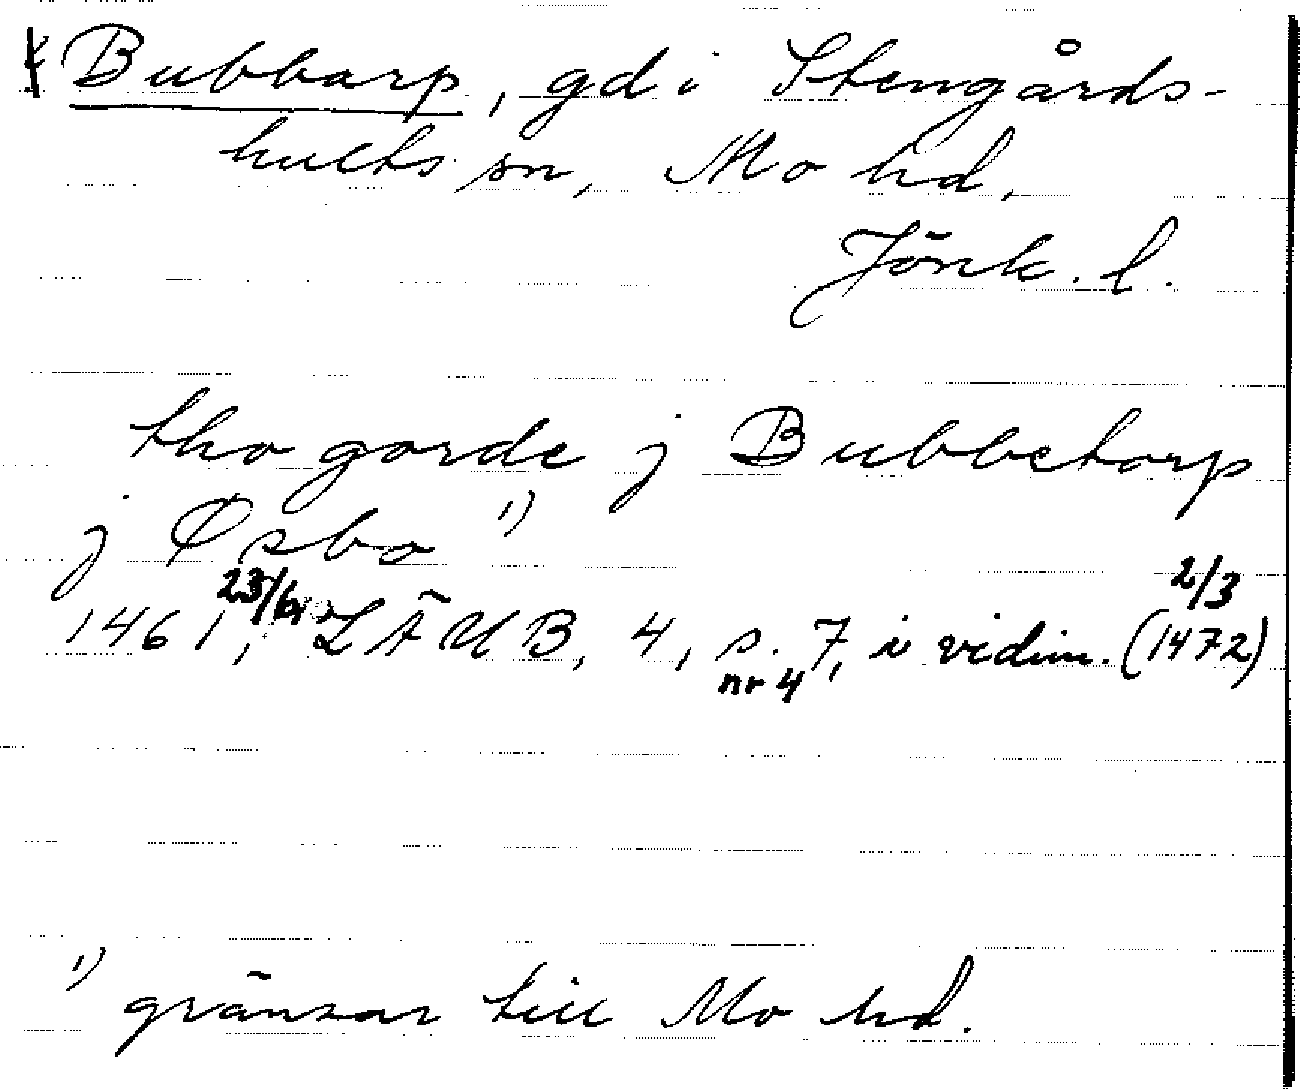 Bubbarp, gd i Stengårds-
hults sn, Mo hd,
Jönk. l.
tho gorde j Bubbetorp
j Øsbo 1)
1461 23/6, LÄUB, 4, s. 7, i vidim. (1472) 2/3
nr 4
1) gränsar till Mo hd.